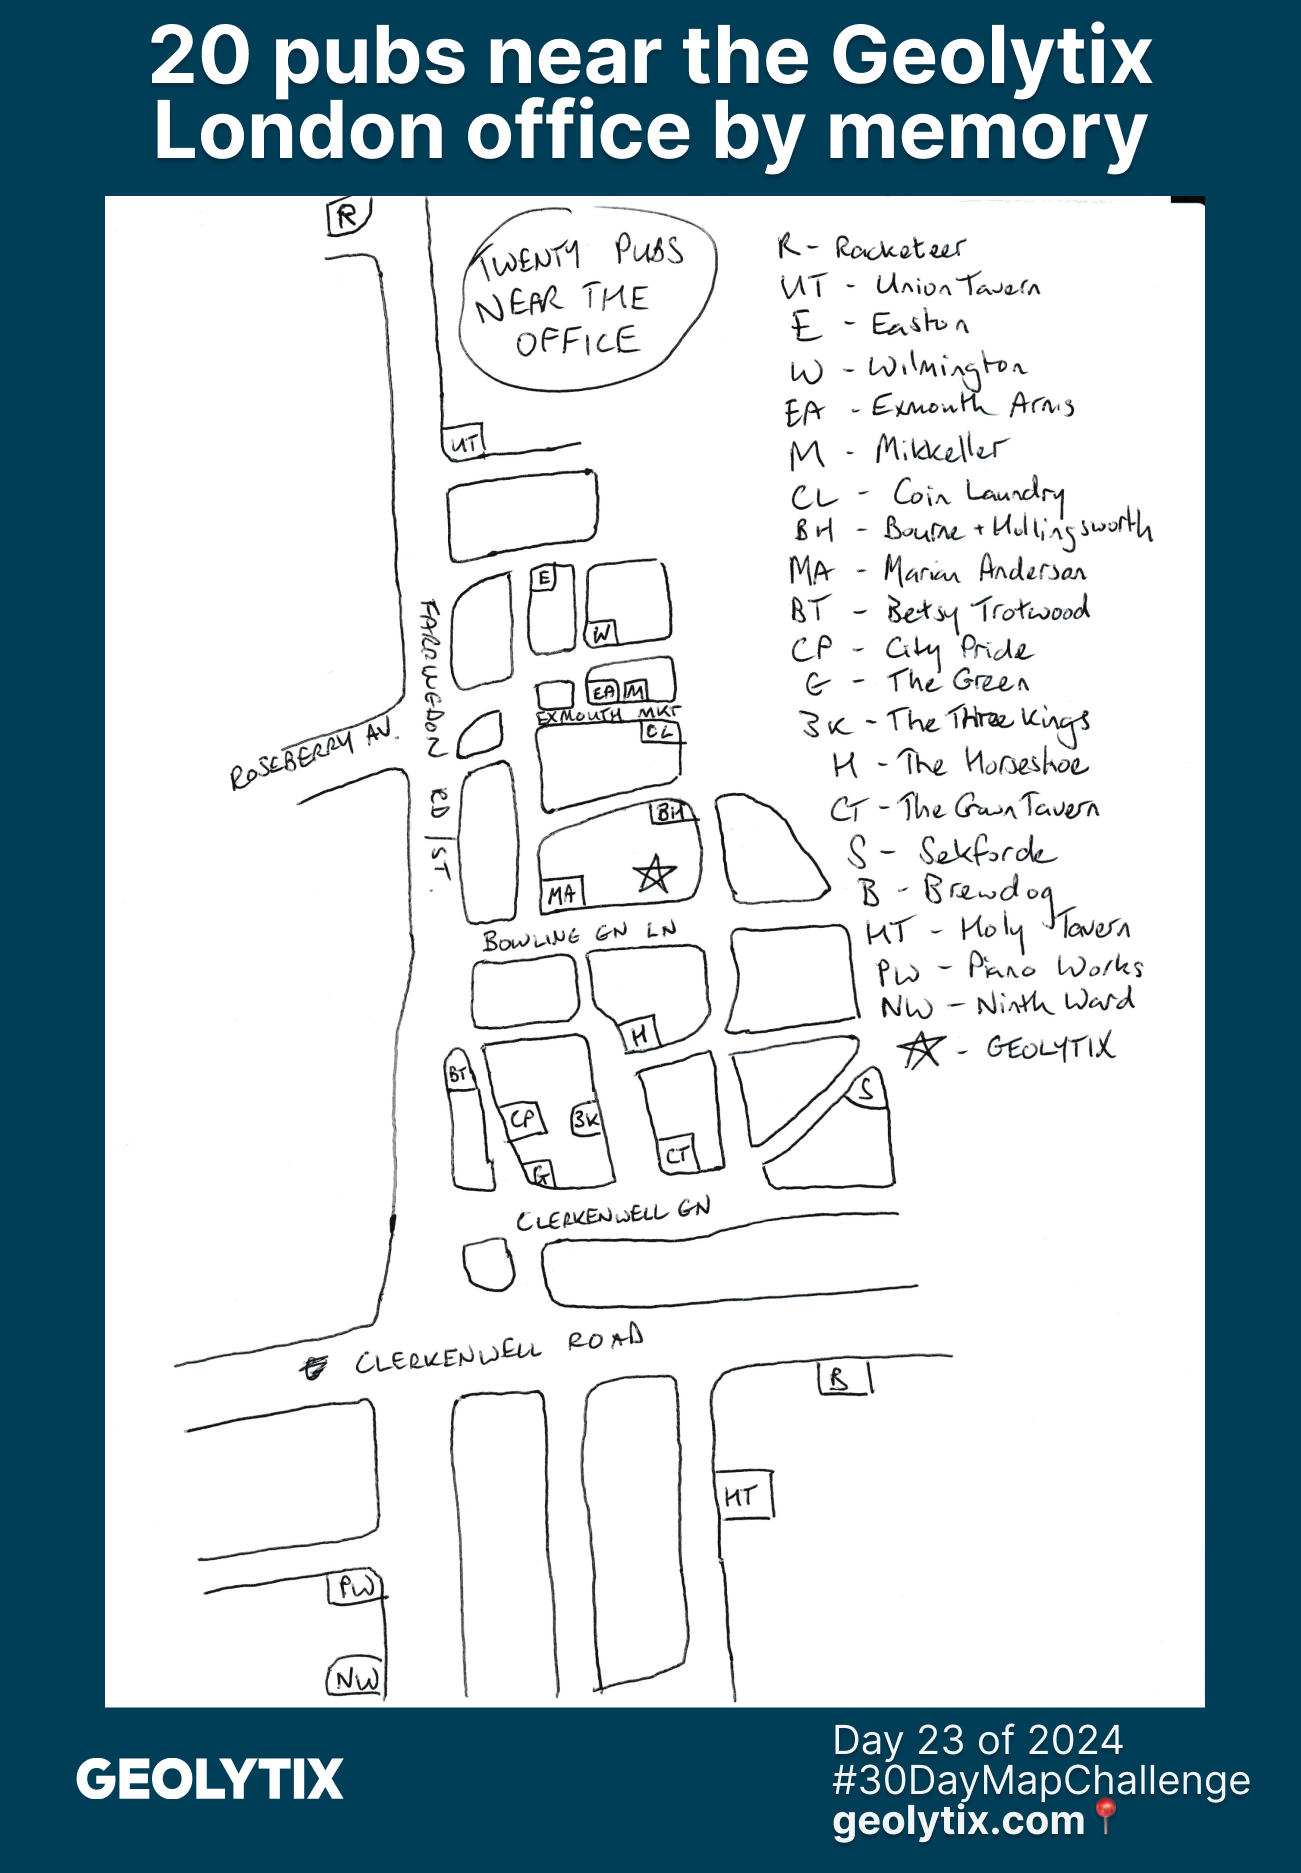 20 pubs near the Geolytix
London office by memory
R
TWENTY PUBS
NEAR THE
OFFICE
UT
E
W
EA
M
EXMOUTH MKT
CL
FARRINGDON RD / ST.
ROSEBERRY AV.
BH
MA
BOWLING GN LN
H
BT
CP
3K
G
CT
S
CLERKENWELL GN
CLERKENWELL ROAD
B
HT
PW
NW
R - Racketeer
UT - Union Tavern
E - Easton
W - Wilmington
EA - Exmouth Arms
M - Mikkeller
CL - Coin Laundry
BH - Bourne + Hollingsworth
MA - Marian Anderson
BT - Betsy Trotwood
CP - City Pride
G - The Green
3K - The Three Kings
H - The Horseshoe
CT - The Crown Tavern
S - Sekforde
B - Brewdog
HT - Holy Tavern
PW - Piano Works
NW - Ninth Ward
- GEOLYTIX
GEOLYTIX
Day 23 of 2024
#30DayMapChallenge
geolytix.com